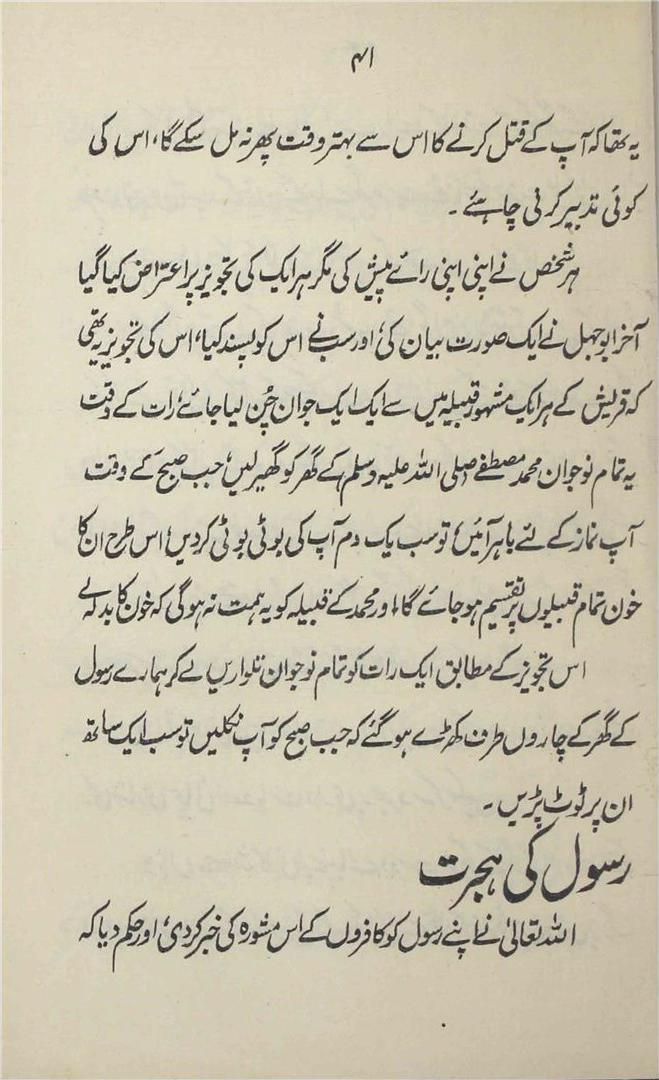 ۴۱
یہ تھا کہ آپ کے قتل کرنے کا اس سے بہتر وقت پھر نہ مل سکے گا، اس کی
کوئی تدبیر کرنی چاہئے۔
ہر شخص نے اپنی اپنی رائے پیش کی مگر ہر ایک کی تجویز پر اعتراض کیا گیا
آخر ابوجہل نے ایک صورت بیان کی، اور سب نے اس کو پسند کیا، اس کی تجویز یہ تھی
کہ قریش کے ہر ایک مشہور قبیلہ میں سے ایک ایک جوان چُن لیا جائے، رات کے وقت
یہ تمام نوجوان محمد مصطفےٰ صلی اللہ علیہ وسلم کے گھر کو گھیر لیں، جب صبح کے وقت
آپ نماز کے لئے باہر آئیں، تو سب یک دم آپ کی بوٹی بوٹی کر دیں، اس طرح ان کا
خون تمام قبیلوں پر تقسیم ہو جائے گا، اور محمد کے قبیلہ کو یہ ہمت نہ ہوگی کہ خون کا بدلہ لے
اس تجویز کے مطابق ایک رات کو تمام نوجوان تلواریں لے کر ہمارے رسول
کے گھر کے چاروں طرف کھڑے ہو گئے کہ جب صبح کو آپ نکلیں تو سب ایک ساتھ
ان پر ٹوٹ پڑیں۔
رسول کی ہجرت
اللہ تعالیٰ نے اپنے رسول کو کافروں کے اس مشورہ کی خبر کر دی، اور حکم دیا کہ